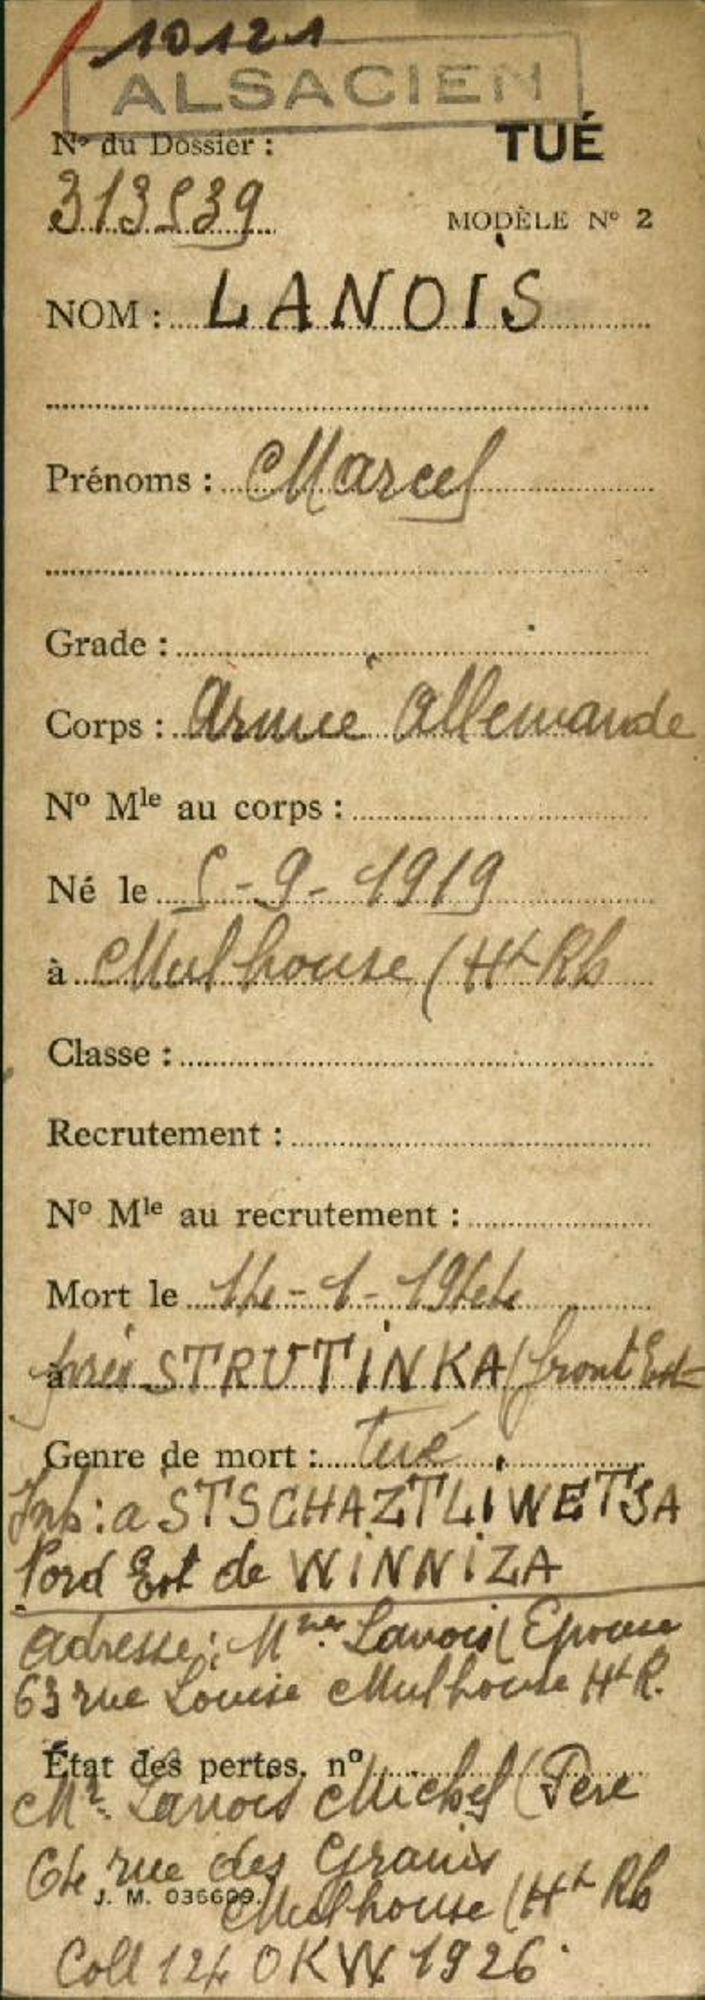 10121
ALSACIEN
N° du Dossier :
TUÉ
313539
MODÈLE N° 2
NOM : LANOIS
Prénoms : Marcel
Grade :
Corps : Armée Allemande
N° Mle au corps :
Né le 5-9-1919
à Mulhouse (Ht Rh
Classe :
Recrutement :
N° Mle au recrutement :
Mort le 14-1-1944
à près STRUTINKA (front Est
Genre de mort : tué
Inh: a STSCHAZTLIWETSA
Nord Est de WINNIZA
Adresse: Mme Lanois (Epouse
63 rue Louise Mulhouse Ht R.
État des pertes. n°
Mr. Lanois Michel (Père
64 rue des Grains
J. M. 036609.
Mulhouse (Ht Rh
Coll 124 OKW 1926